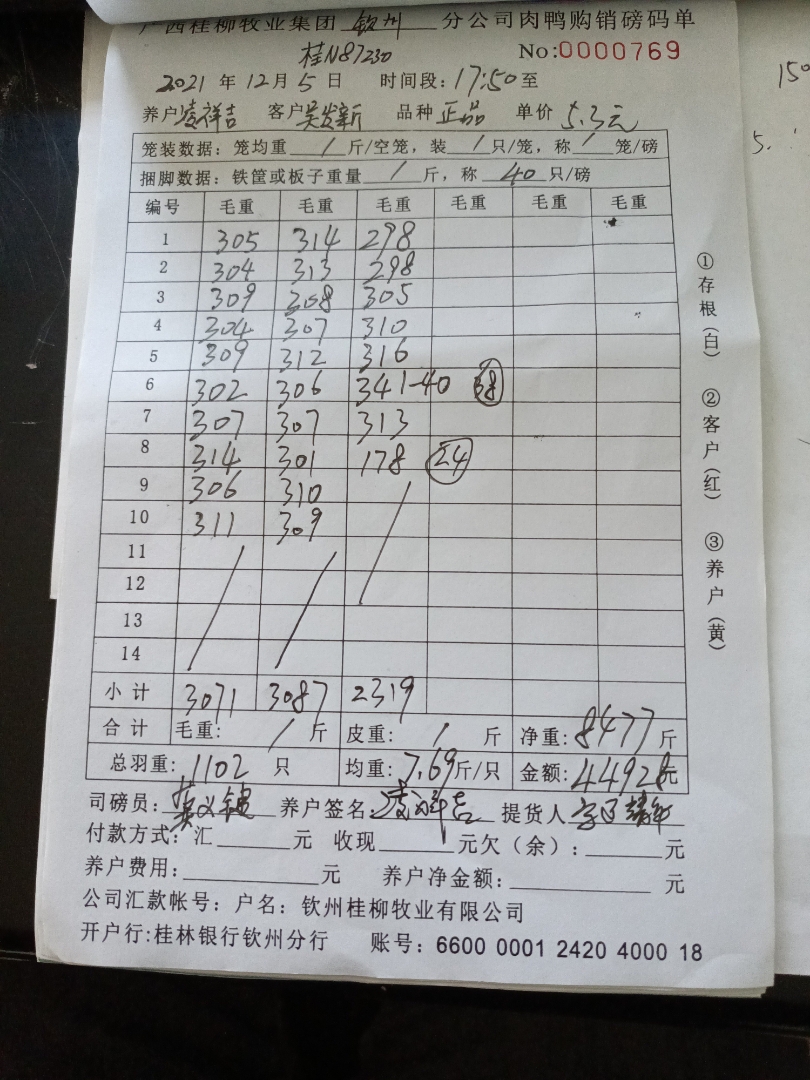 广西桂柳牧业集团 钦州 分公司肉鸭购销磅码单
桂N87230 No:0000769
2021 年 12 月 5 日 时间段: 17:50 至
养户 凌祥吉 客户 吴发新 品种 正品 单价 5.3元
笼装数据: 笼均重 / 斤/空笼, 装 / 只/笼, 称 / 笼/磅
捆脚数据: 铁筐或板子重量 / 斤, 称 40 只/磅
编号 毛重 毛重 毛重 毛重 毛重 毛重
1 305 314 298
2 304 313 298
3 309 308 305
4 304 307 310
5 309 312 316
6 302 306 341-40 38
7 307 307 313
8 314 301 178 24
9 306 310
10 311 309
11
12
13
14
小计 3071 3087 2319
合计 毛重: / 斤 皮重: / 斤 净重: 8477 斤
总羽重: 1102 只 均重: 7.69 斤/只 金额: 44928 元
司磅员: 养户签名: 凌祥吉 提货人
付款方式: 汇 元 收现 元欠(余): 元
养户费用: 元 养户净金额: 元
公司汇款帐号: 户名: 钦州桂柳牧业有限公司
开户行:桂林银行钦州分行 账号: 6600 0001 2420 4000 18
①存根(白) ②客户(红) ③养户(黄)
150
5.